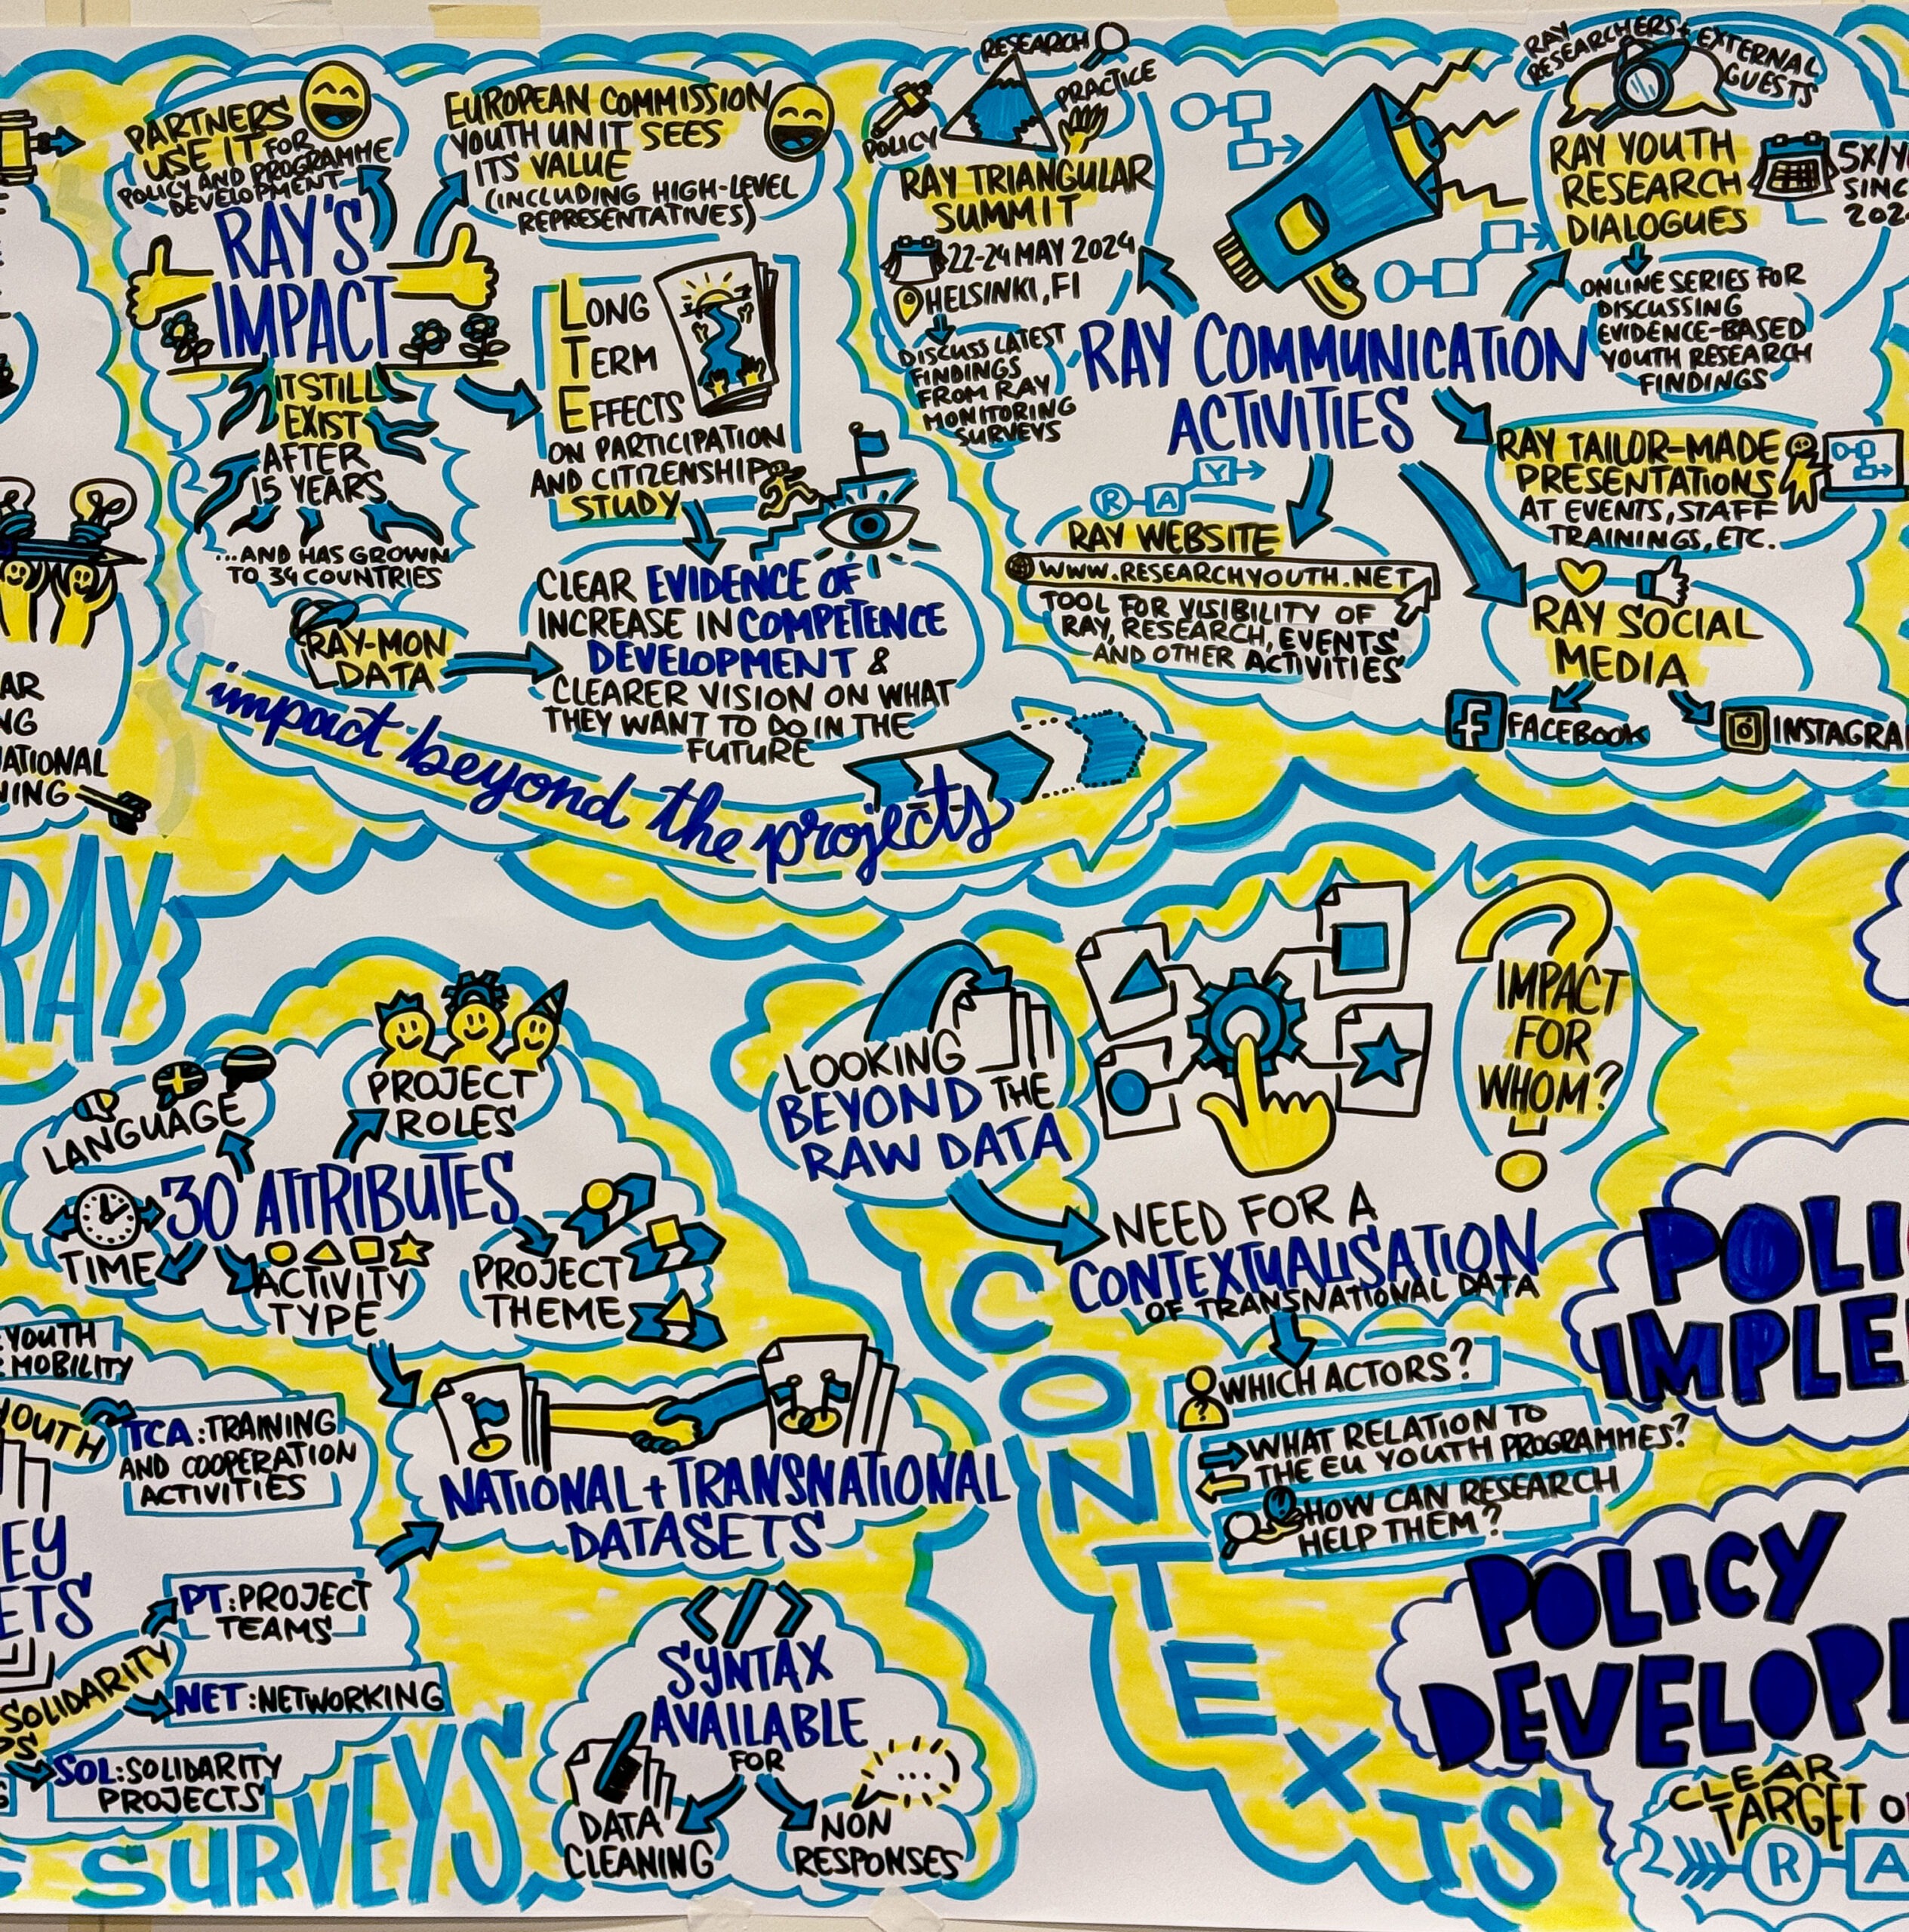 PARTNERS
USE IT FOR
POLICY AND PROGRAMME
DEVELOPMENT
EUROPEAN COMMISSION
YOUTH UNIT SEES
ITS VALUE
(INCLUDING HIGH-LEVEL
REPRESENTATIVES)
RAY'S
IMPACT
IT STILL
EXIST
AFTER
15 YEARS
...AND HAS GROWN
TO 34 COUNTRIES
LONG
TERM
EFFECTS
ON PARTICIPATION
AND CITIZENSHIP
STUDY
RAY-MON
DATA
CLEAR EVIDENCE OF
INCREASE IN COMPETENCE
DEVELOPMENT &
CLEARER VISION ON WHAT
THEY WANT TO DO IN THE
FUTURE
impact beyond the projects
RESEARCH
PRACTICE
POLICY
RAY TRIANGULAR
SUMMIT
22-24 MAY 2024
HELSINKI, FI
DISCUSS LATEST
FINDINGS
FROM RAY
MONITORING
SURVEYS
RAY COMMUNICATION
ACTIVITIES
RAY
RESEARCHERS + EXTERNAL
GUESTS
RAY YOUTH
RESEARCH
DIALOGUES
5X/Y
SINC
202
ONLINE SERIES FOR
DISCUSSING
EVIDENCE-BASED
YOUTH RESEARCH
FINDINGS
RAY TAILOR-MADE
PRESENTATIONS
AT EVENTS, STAFF
TRAININGS, ETC.
R A Y
RAY WEBSITE
WWW.RESEARCHYOUTH.NET
TOOL FOR VISIBILITY OF
RAY, RESEARCH, EVENTS
AND OTHER ACTIVITIES
RAY SOCIAL
MEDIA
FACEBOOK
INSTAGRA
AR
NG
NATIONAL
NING
RAY
LANGUAGE
PROJECT
ROLES
30 ATTRIBUTES
TIME
ACTIVITY
TYPE
PROJECT
THEME
YOUTH
MOBILITY
YOUTH
TCA: TRAINING
AND COOPERATION
ACTIVITIES
NATIONAL + TRANSNATIONAL
DATASETS
EY
ETS
PT: PROJECT
TEAMS
SOLIDARITY
NET: NETWORKING
SOL: SOLIDARITY
PROJECTS
SURVEYS
</>
SYNTAX
AVAILABLE
FOR
DATA
CLEANING
NON
RESPONSES
LOOKING
BEYOND THE
RAW DATA
IMPACT
FOR
WHOM?
NEED FOR A
CONTEXTUALISATION
OF TRANSNATIONAL DATA
WHICH ACTORS?
WHAT RELATION TO
THE EU YOUTH PROGRAMMES?
HOW CAN RESEARCH
HELP THEM?
CONTEXTS
POLI
IMPLE
POLICY
DEVELOP
CLEAR
TARGET O
R A